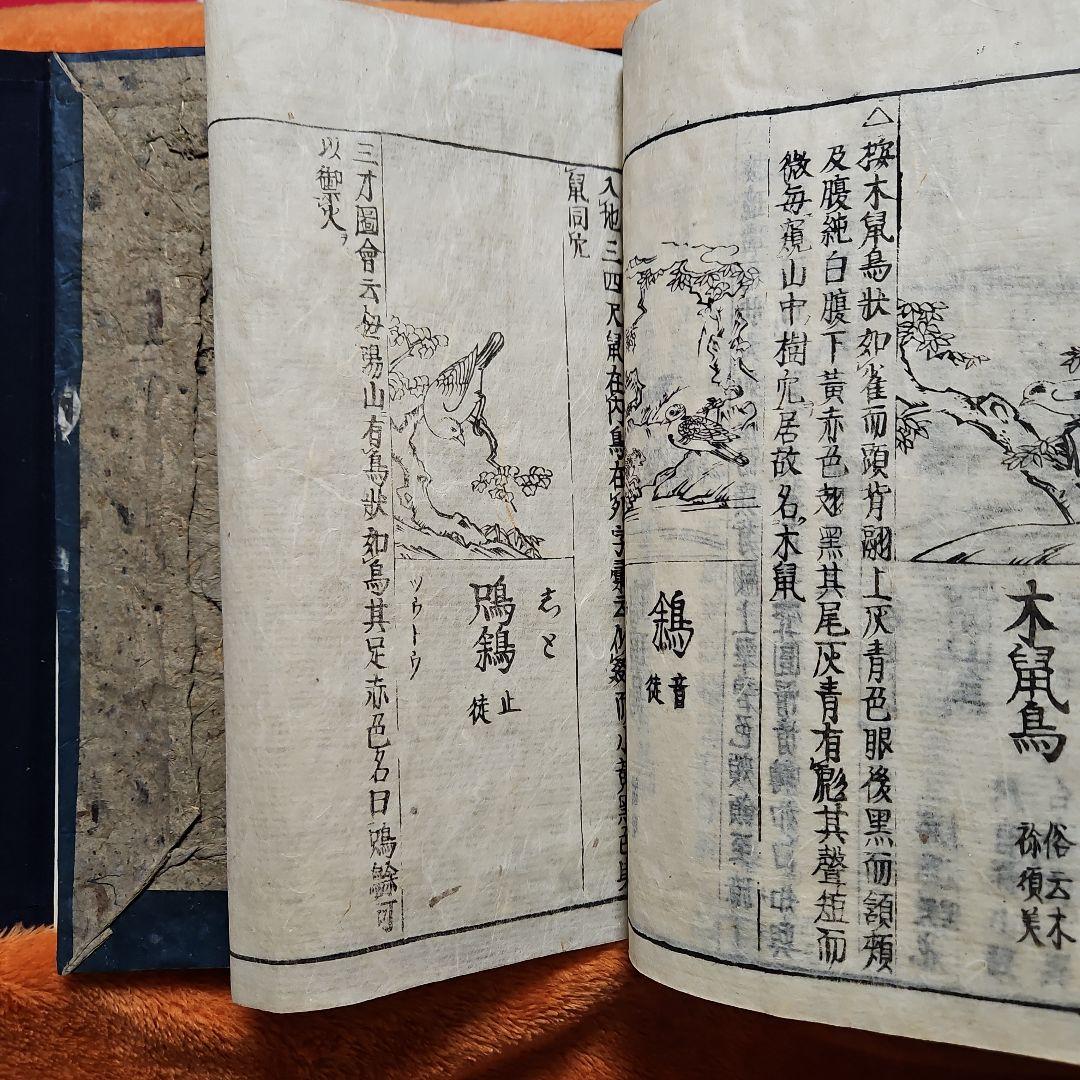 木鼠鳥
俗云木
祢須美
△按木鼠鳥狀如雀而頭背翮上灰青色眼後黑而頷頰
及腹純白腹下黃赤色翅黑其尾灰青有彪其聲短而
微每窺山中樹穴居故名木鼠
音
徒
入地三四尺鼠在內鳥在外字彙云
鼠同穴
志と
止
徒
ツウトウ
三才圖會云
山有鳥狀如烏其足赤色名曰
可
以禦火ヲ